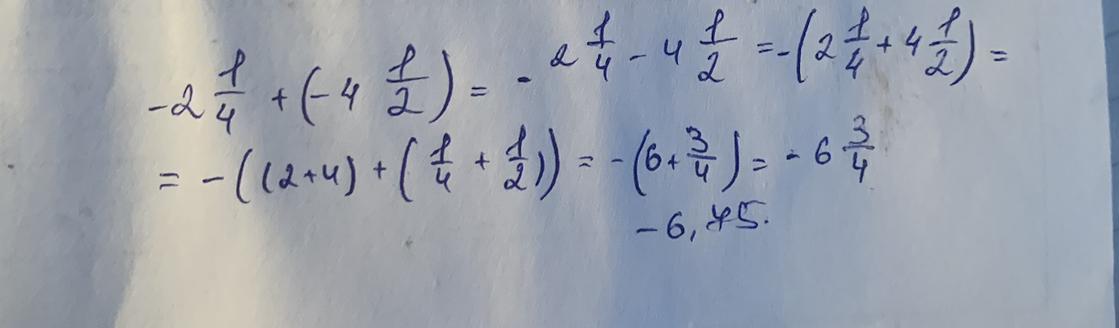 -2 1/4 + (-4 1/2) = -2 1/4 - 4 1/2 = -(2 1/4 + 4 1/2) =
= -((2+4) + (1/4 + 1/2)) = -(6 + 3/4) = -6 3/4
-6,75.